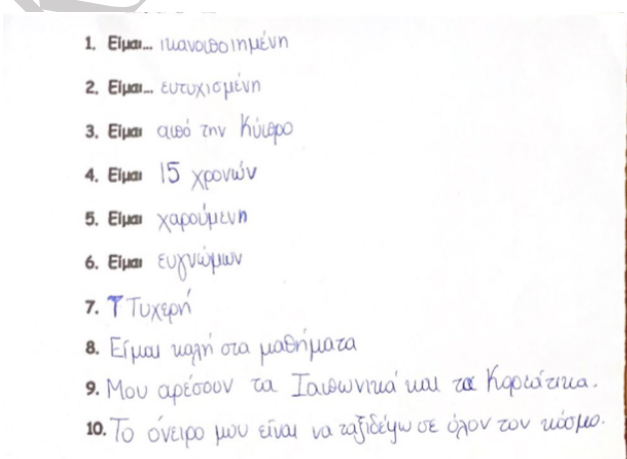 1. Είμαι... ικανοποιημένη
2. Είμαι... ευτυχισμένη
3. Είμαι από την Κύπρο
4. Είμαι 15 χρονών
5. Είμαι χαρούμενη
6. Είμαι ευγνώμων
7. Τ Τυχερή
8. Είμαι καλή στα μαθήματα
9. Μου αρέσουν τα Ιαπωνικά και τα Κορεάτικα.
10. Το όνειρο μου είναι να ταξιδέψω σε όλον τον κόσμο.